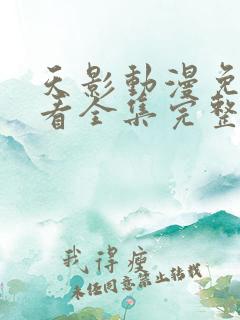 天影動漫免
看全集完整
我得瘦
未经同意禁止转载